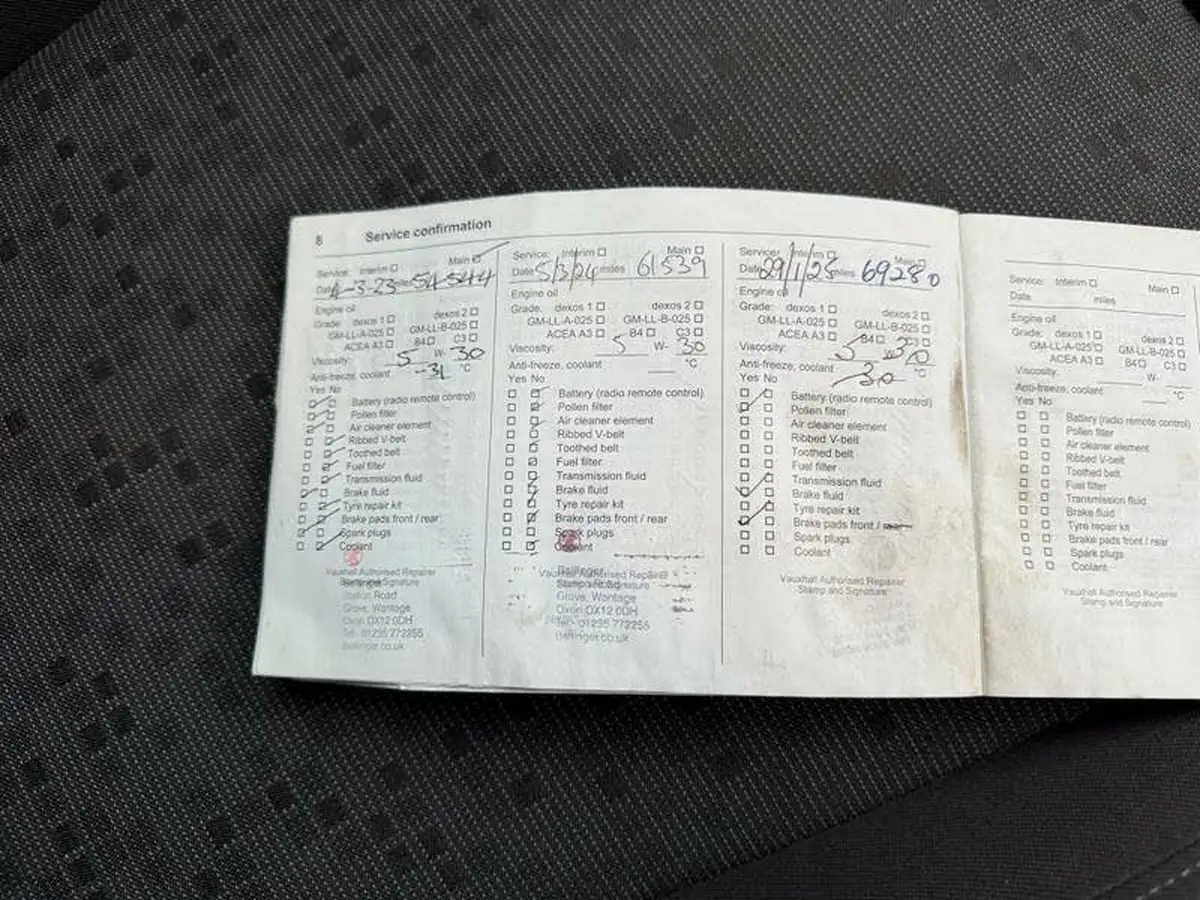 8 Service confirmation
Service: Interim ☐ Main ☑
Date 4-3-23 miles 54544
Engine oil
Grade: dexos 1 ☐ dexos 2 ☐
GM-LL-A-025 ☐ GM-LL-B-025 ☐
ACEA A3 ☐ B4 ☐ C3 ☐
Viscosity: 5 W- 30
Anti-freeze, coolant -31 °C
Yes No
Battery (radio remote control)
Pollen filter
Air cleaner element
Ribbed V-belt
Toothed belt
Fuel filter
Transmission fluid
Brake fluid
Tyre repair kit
Brake pads front / rear
Spark plugs
Coolant
Vauxhall Authorised Repairer
Stamp and Signature
Station Road
Grove, Wantage
Oxon OX12 0DH
Tel: 01235 772255
Bellinger.co.uk
Service: Interim ☐ Main ☐
Date 5/3/24 miles 61539
Engine oil
Grade: dexos 1 ☐ dexos 2 ☐
GM-LL-A-025 ☐ GM-LL-B-025 ☐
ACEA A3 ☐ B4 ☐ C3 ☐
Viscosity: 5 W- 30
Anti-freeze, coolant °C
Yes No
Battery (radio remote control)
Pollen filter
Air cleaner element
Ribbed V-belt
Toothed belt
Fuel filter
Transmission fluid
Brake fluid
Tyre repair kit
Brake pads front / rear
Spark plugs
Coolant
Bellinger
Vauxhall Authorised Repairer
Stamp and Signature
Grove, Wantage
Oxon OX12 0DH
Tel: 01235 772255
Bellinger.co.uk
Service: Interim Main ☐
Date 29/1/28 miles 69280
Engine oil
Grade: dexos 1 ☐ dexos 2 ☐
GM-LL-A-025 ☐ GM-LL-B-025 ☐
ACEA A3 ☐ B4 ☐ C3 ☐
Viscosity: 5 W 30
Anti-freeze, coolant 30 °C
Yes No
Battery (radio remote control)
Pollen filter
Air cleaner element
Ribbed V-belt
Toothed belt
Fuel filter
Transmission fluid
Brake fluid
Tyre repair kit
Brake pads front / rear
Spark plugs
Coolant
Vauxhall Authorised Repairer
Stamp and Signature
Service: Interim ☐ Main ☐
Date miles
Engine oil
Grade: dexos 1 ☐ dexos 2 ☐
GM-LL-A-025 ☐ GM-LL-B-025 ☐
ACEA A3 ☐ B4 ☐ C3 ☐
Viscosity: W-
Anti-freeze, coolant °C
Yes No
Battery (radio remote control)
Pollen filter
Air cleaner element
Ribbed V-belt
Toothed belt
Fuel filter
Transmission fluid
Brake fluid
Tyre repair kit
Brake pads front / rear
Spark plugs
Coolant
Vauxhall Authorised Repairer
Stamp and Signature